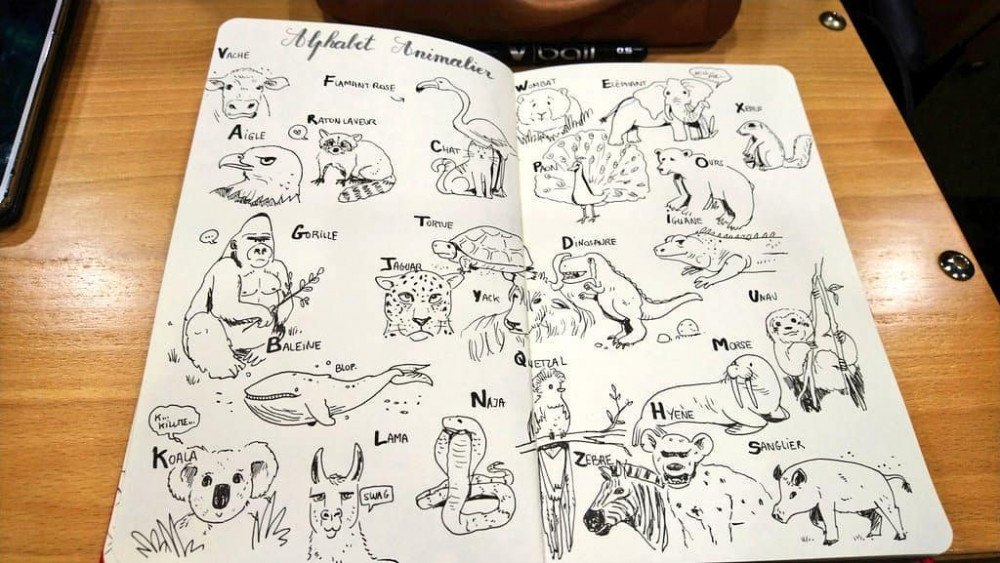 Alphabet Animalier
V ball 0.5
VACHE
FLAMANT ROSE
AIGLE
RATON LAVEUR
CHAT
GORILLE
TORTUE
JAGUAR
YACK
BALEINE
BLOP.
NAJA
K...
KILLME...
KOALA
LAMA
SWAG
WOMBAT
ELÉPHANT
XERUS
PAON
OURS
IGUANE
DINOSAURE
UNAU
QUETZAL
MORSE
HYENE
ZEBRE
SANGLIER